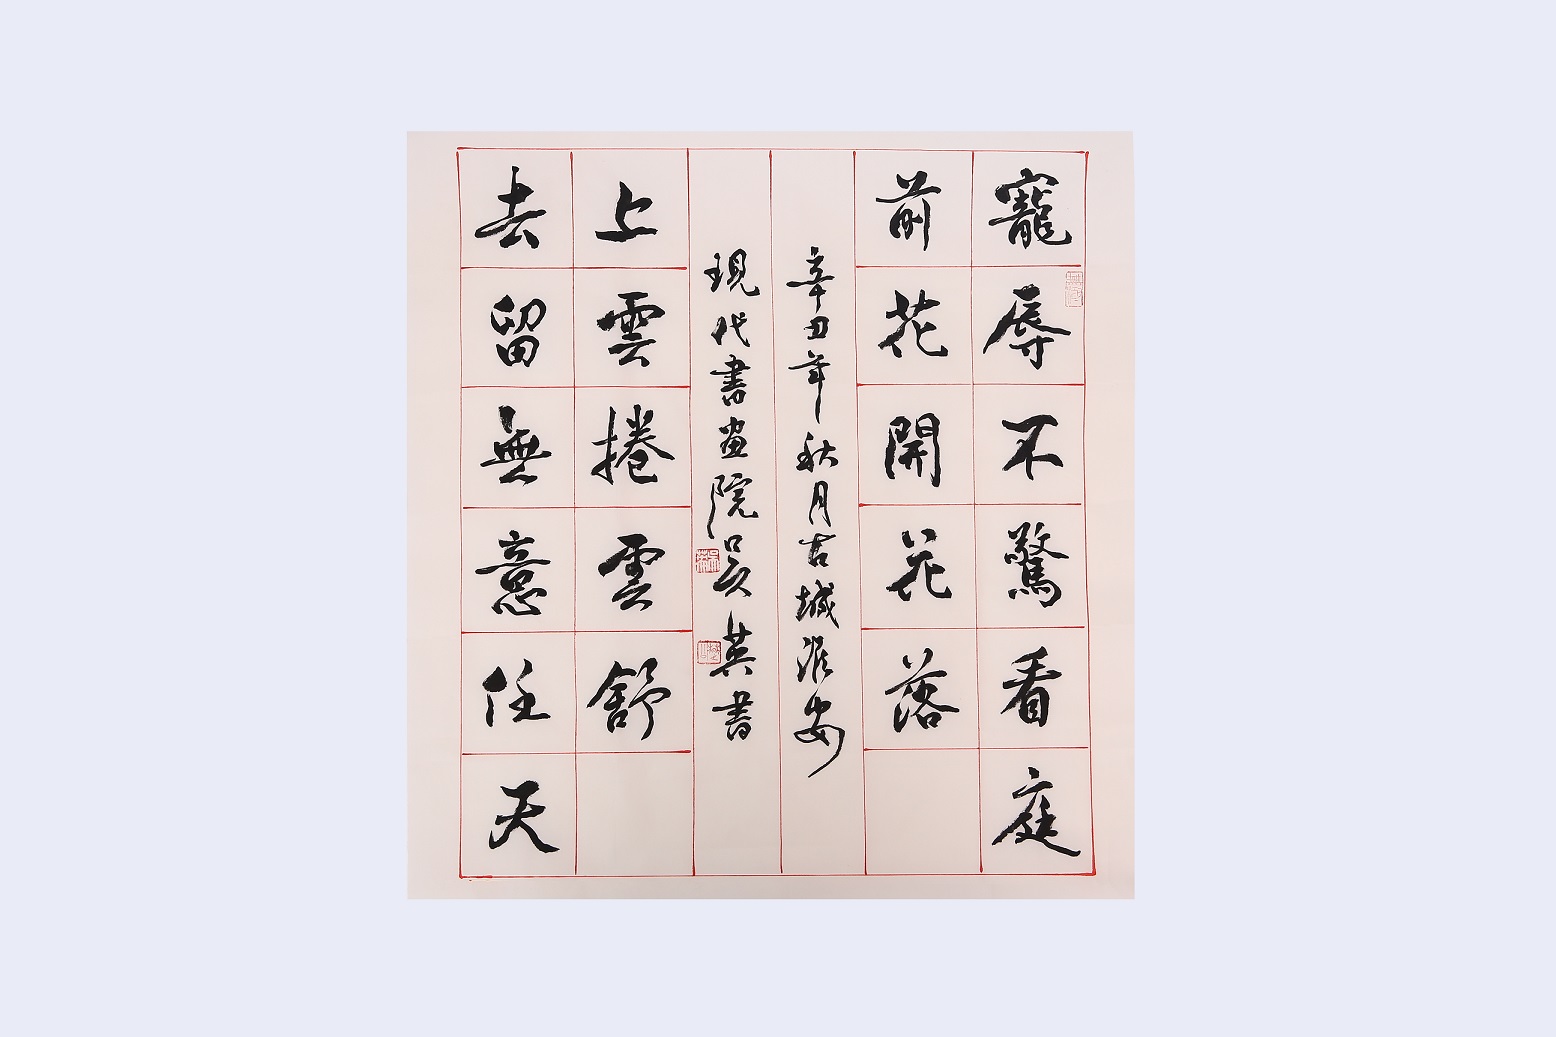 寵辱不驚看庭
前花開花落
去留無意任天
上雲捲雲舒
辛丑年秋月古城淮安
現代書畫院吳英書